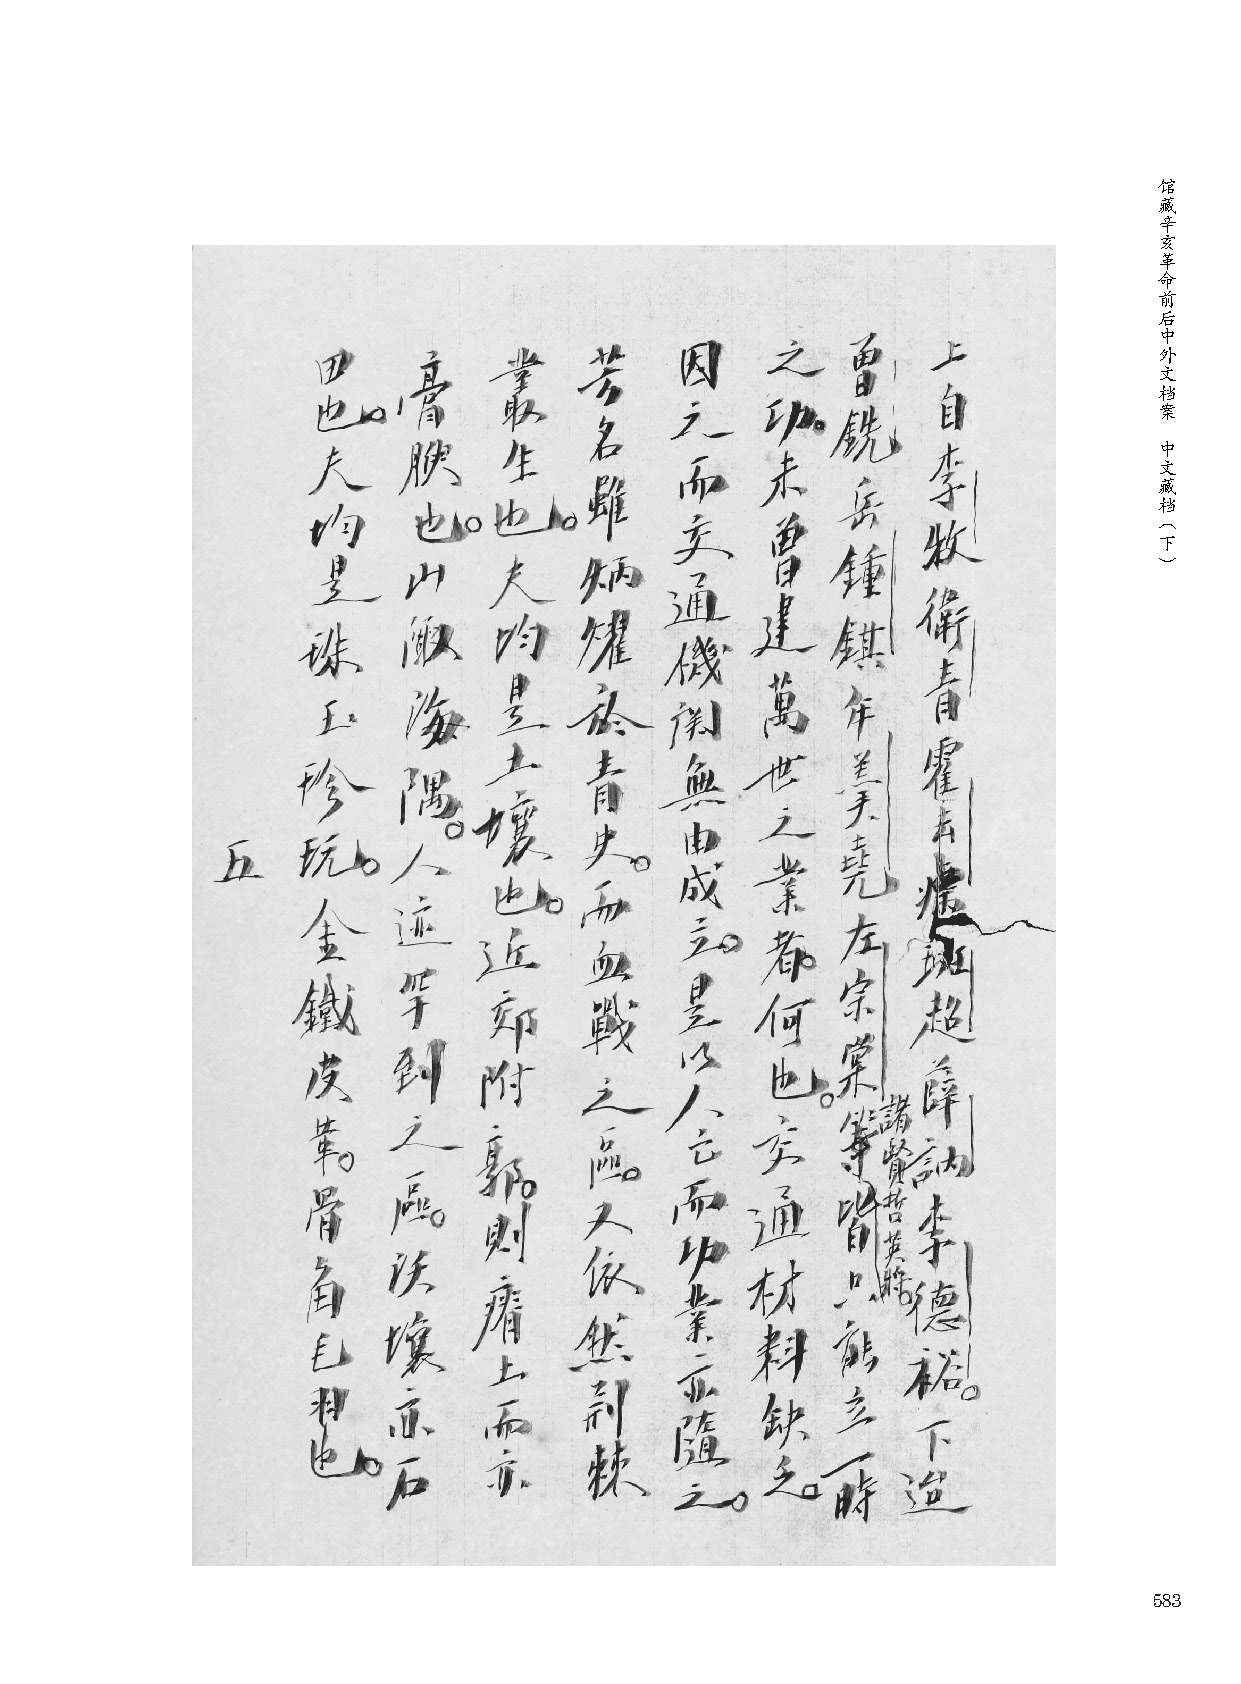 馆藏辛亥革命前后中外文档案 中文藏档（下）
上自李牧衛青霍去病班超薛訥李德裕。下迨
曾銑岳鍾錤年羮堯左宗棠等諸賢哲英㽞。皆只能立一時
之功。未曾建萬世之業者。何也。交通材料缺乏。
因之而交通機関無由成立。是以人亡而功業亦隨之。
芳名雖炳燿於青史。而血戰之區。又依然荊棘
叢生也。夫均是土壤也。近郊附郭。則瘠土而亦
膏腴也。山陬海隅。人迹罕到之區。沃壤亦石
田也。夫均是珠玉珍玩。金鐵皮革。骨角毛羽也。
五
583